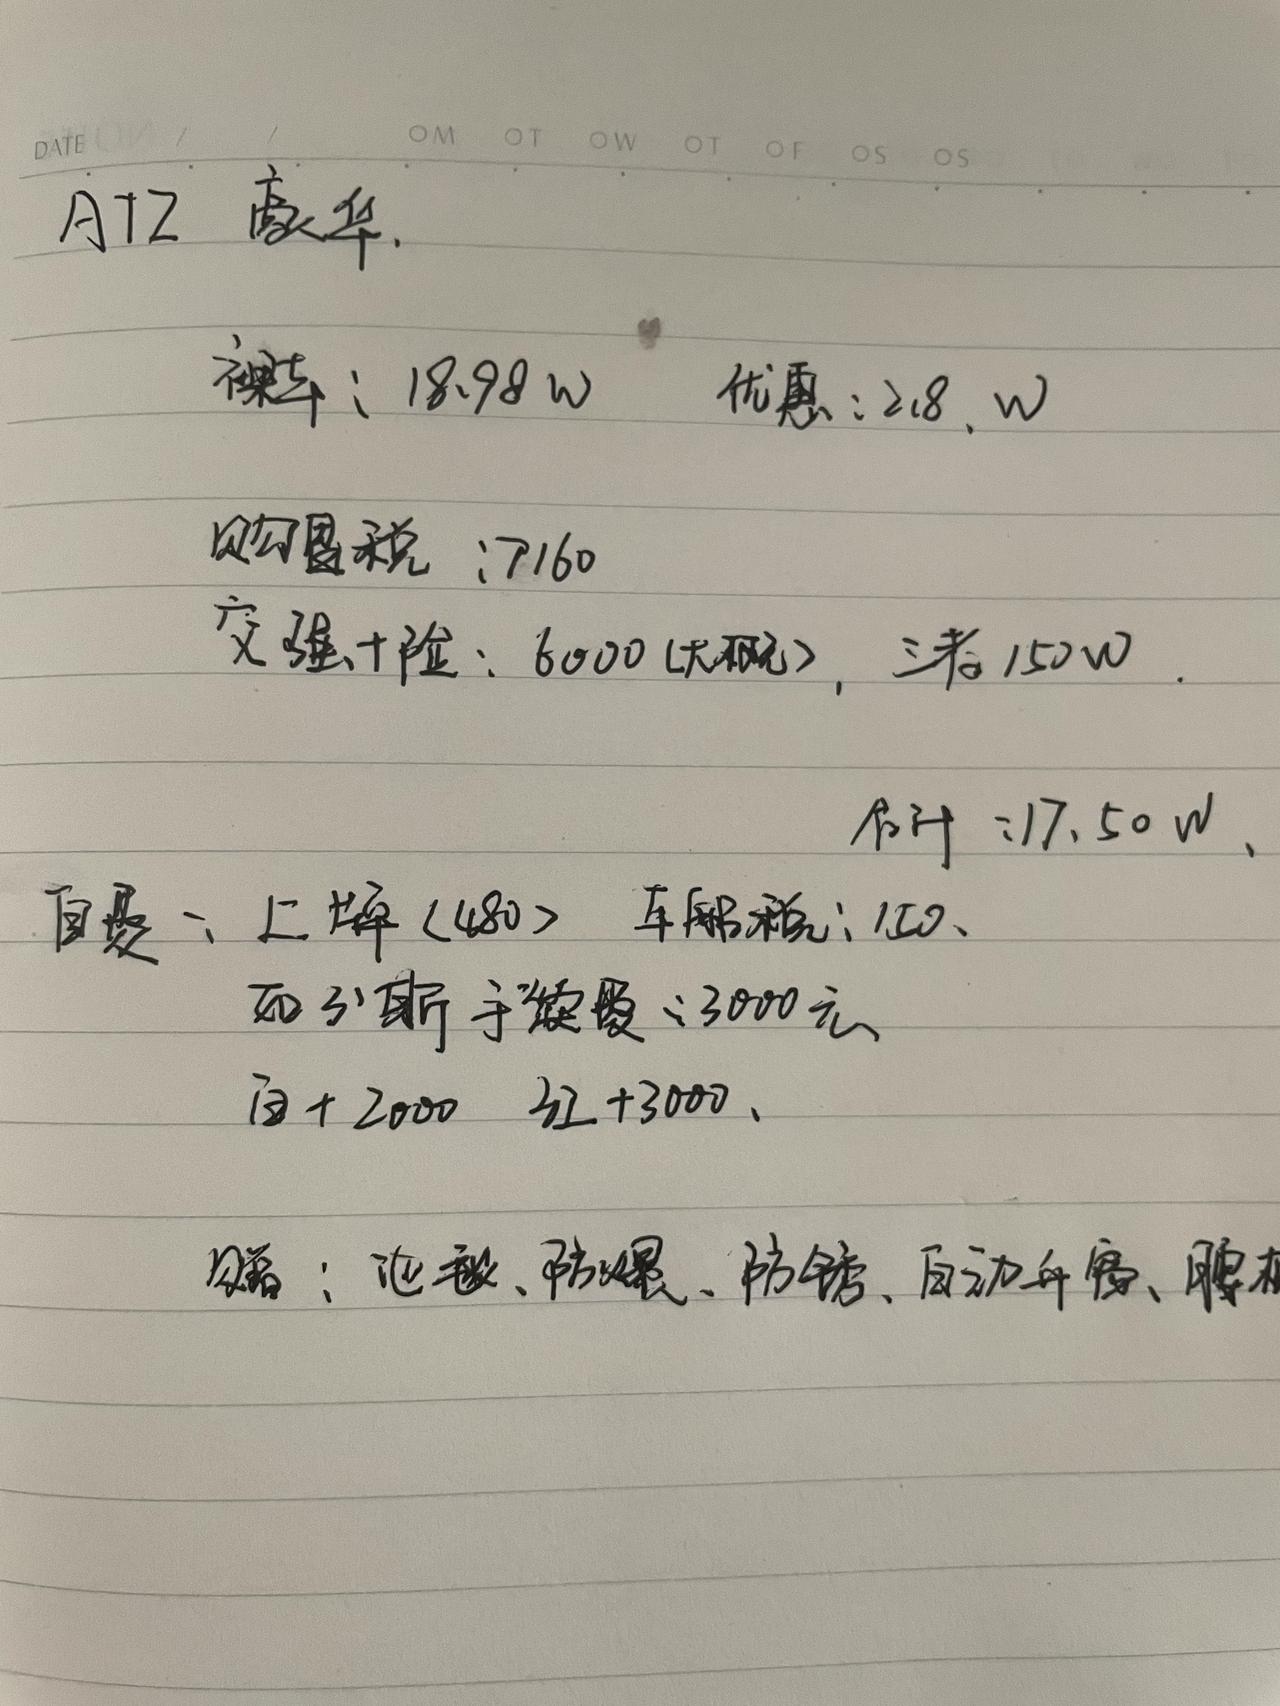 DATE / / OM OT OW OT OF OS OS
ATZ 豪华.
裸车：18.98W 优惠：2.8.W
购置税：7160
交强+险：6000（大概），三者150W.
合计：17.50W、
自费：上牌（480） 车船税：150、
手续费：3000元、
白+2000 红+3000、
赠：地毯、防爆、防锈、自动升窗、腰